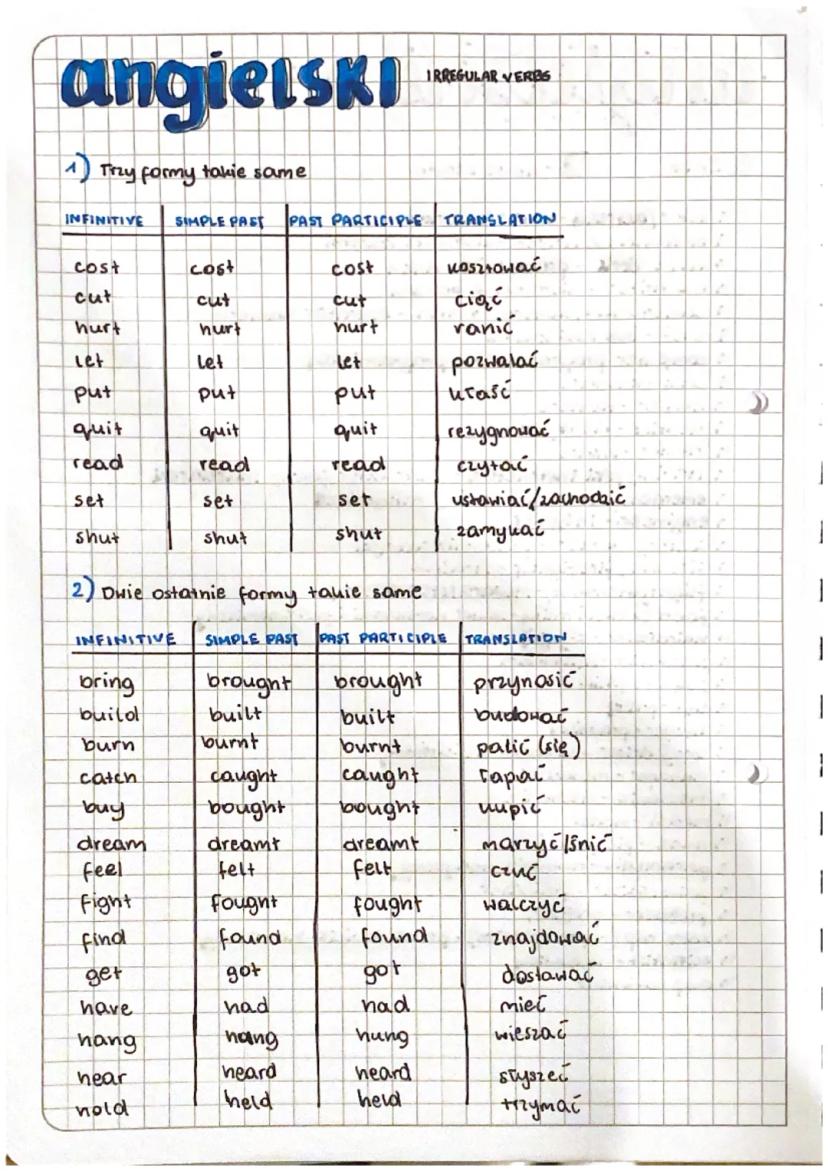 angielski IRREGULAR VERBS
1) Trzy formy takie same
INFINITIVE SIMPLE PAST PAST PARTICIPLE TRANSLATION
cost cost cost kosztować
cut cut cut ciąć
hurt hurt hurt ranić
let let let pozwalać
put put put kłaść
quit quit quit rezygnować
read read read czytać
set set set ustawiać/zachodzić
shut shut shut zamykać
2) Dwie ostatnie formy takie same
INFINITIVE SIMPLE PAST PAST PARTICIPLE TRANSLATION
bring brought brought przynosić
build built built budować
burn burnt burnt palić (się)
catch caught caught łapać
buy bought bought kupić
dream dreamt dreamt marzyć/śnić
feel felt felt czuć
fight fought fought walczyć
find found found znajdować
get got got dostawać
have had had mieć
hang hang hung wieszać
hear heard heard słyszeć
hold held held trzymać